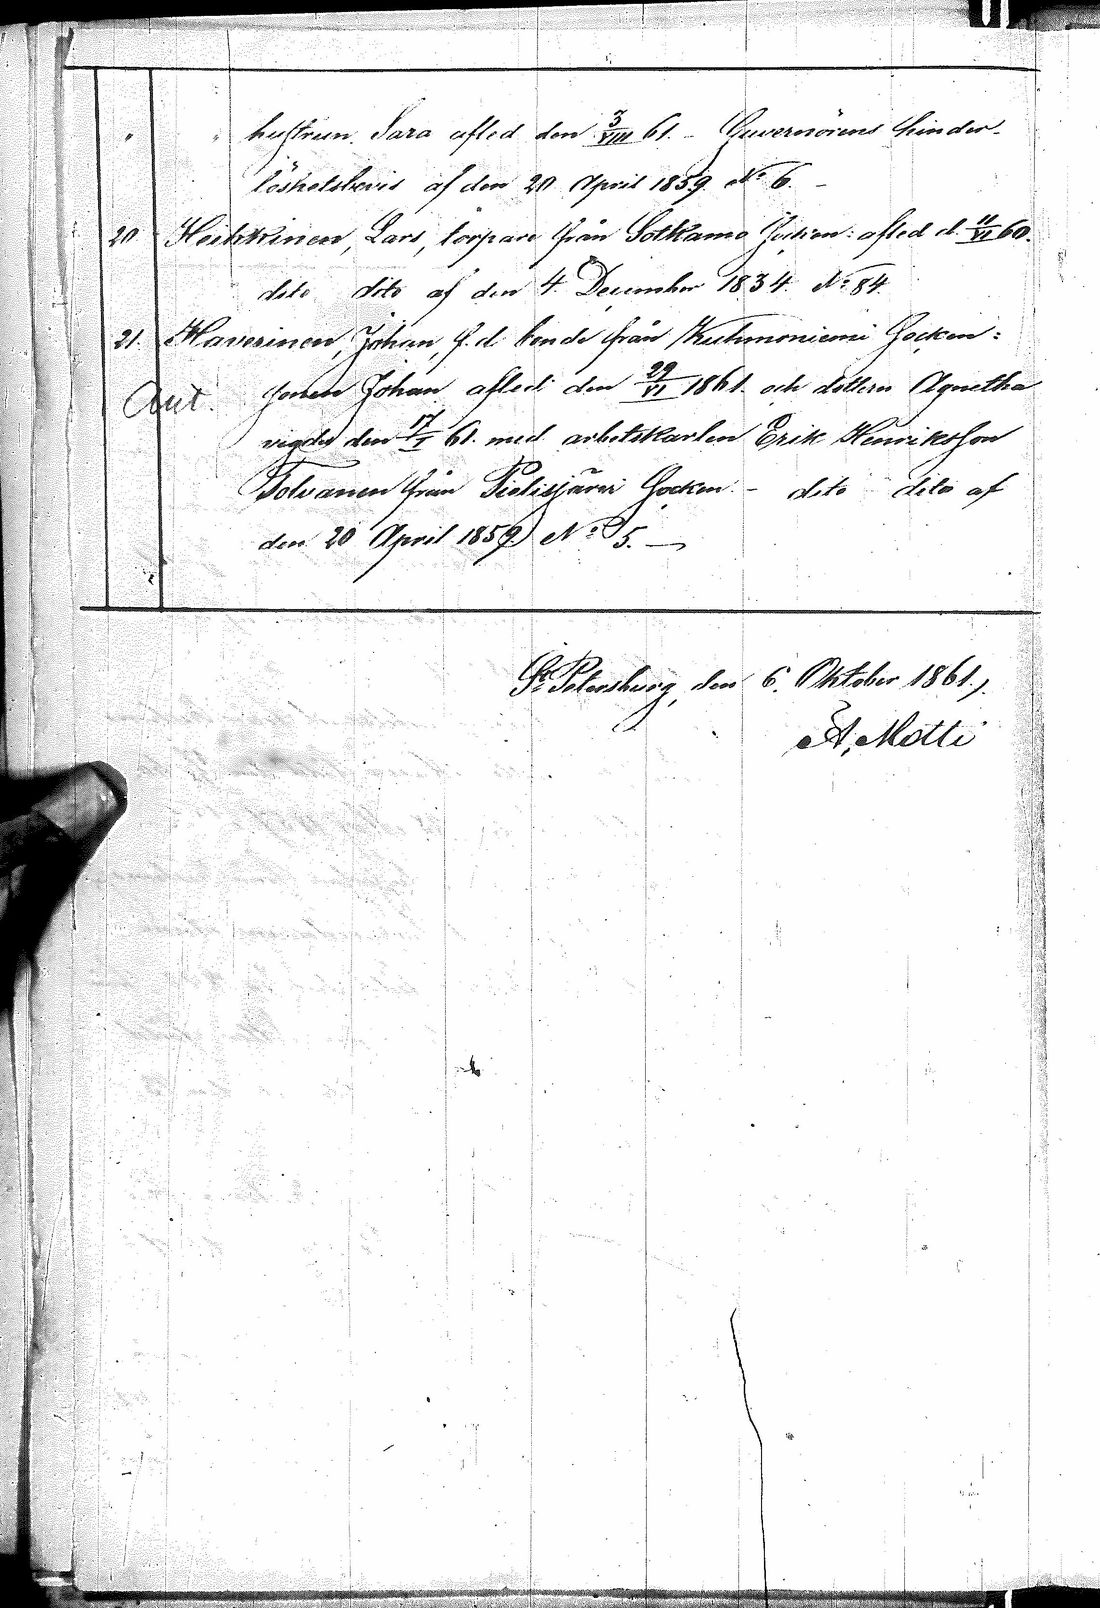 " " hustrun Sara afled den 3/VIII 61. - Guvernörens hinder-
löshetsbevis af den 20 April 1859 No 6. -
20 Heikkinen, Lars, torpare från Sotkamo Socken: afled d. 11/VI 60.
dito dito af den 4. December 1834. No 84.
21. Haverinen, Johan, f.d. bonde från Kuhmoniemi Socken:
Aut. sonen Johan afled den 29/VI 1861. och dottern Agnetha
vigdes den 17/I 61. med arbetskarlen Erik Henriksson
Tolvanen från Pielisjärvi Socken. - dito dito af
den 20 April 1859 No 5. -
St Petersburg, den 6. Oktober 1861.
A. Motti